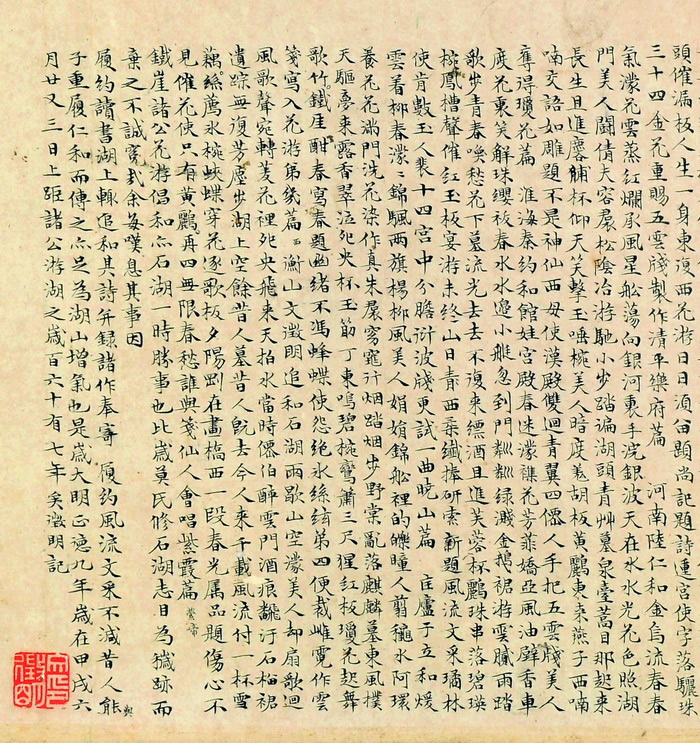 頭催漏板人生一身東復西花游日日須酉顯尚記題詩連宮使字落驪珠
三十四金花重賜五雲牋製作清平樂府篇　河南陸仁和金烏流春春
氣濛花雲蒸紅爛承風星船蕩向銀河裏手浣銀波天在水水光花色照湖
門美人鬪倩夫容裠松陰冶游馳小步踏遍湖頭青艸墓泉臺蒿日那起来
長生且進麐脯杯仰天笑擊玉唾椀美人暗度羗胡板黄鸝東来燕子西喃
喃交語如雕題不是神仙西母使漢殿雙迴青翼四僊人手把五雲牋美人
奪得瓊花篇　淮海秦約和館娃宮殿春迷濛襍花芳菲嬌亞風油壁香車
度花裏笑解珠纓袚春水水邊小艇忽到門粼粼绿濺金鵝裙游雲膩雨踏
歌步青春喚愁花下墓流光去去不復来縹酒且進芙蓉杯鸝珠串落碧瑛
椀鳳槽聲催紅玉板宴游未終山日青西柔纖捧研索新題風流文采璚林
使肯數玉人裴十四宮中分膽衍波牋更試一曲曉山篇　匡廬于立和煖
雲着柳春濛濛錦颿兩旗楊柳風美人娟娟錦船裡的皪瞳人剪穐水阿環
養花花滿門洗花染作真朱裠窄窄行烟踏烟步野棠亂落麒麟墓東風撲
天驅夢来露香翠泣死央杯玉筯丁東鳴碧椀鸞簫三尺猩紅板瓊花起舞
歌竹鐵厓酣春寫春題幽緒不馮蜂蝶使怨絶氷絲絃第四便裁雌霓作雲
箋寫入花游第幾篇　衡山文徵明追和石湖雨歇山空濛美人却扇歌迴
風歌聲宛轉菱花裡死央飛来天拍水當時僊伯醉雲門酒痕飜汙石榴裙
遺踪無復芳塵步湖上空餘昔人墓昔人旣去今人来千載風流付一杯雪
藕絲鳶氷椀蛺蝶穿花逐歌板夕陽剛在畫橋西一段春光属品題傷心不
見催花使只有黄鸝再四無限春愁誰與箋仙人會唱紫霞篇
鐵崖諸公花游倡和亦石湖一時勝事也此歳莫氏修石湖志目為穢跡而
棄之不誠寃哉余每嘆息其事因
履約讀書湖上輙追和其詩并録諸作奉寄　履約風流文采不減昔人能與
子重履仁和而傳之亦足為湖山增氣也是歳大明正徳九年歳在甲戌六
月廿又三日上距諸公游湖之歳百六十有七年矣徵明記